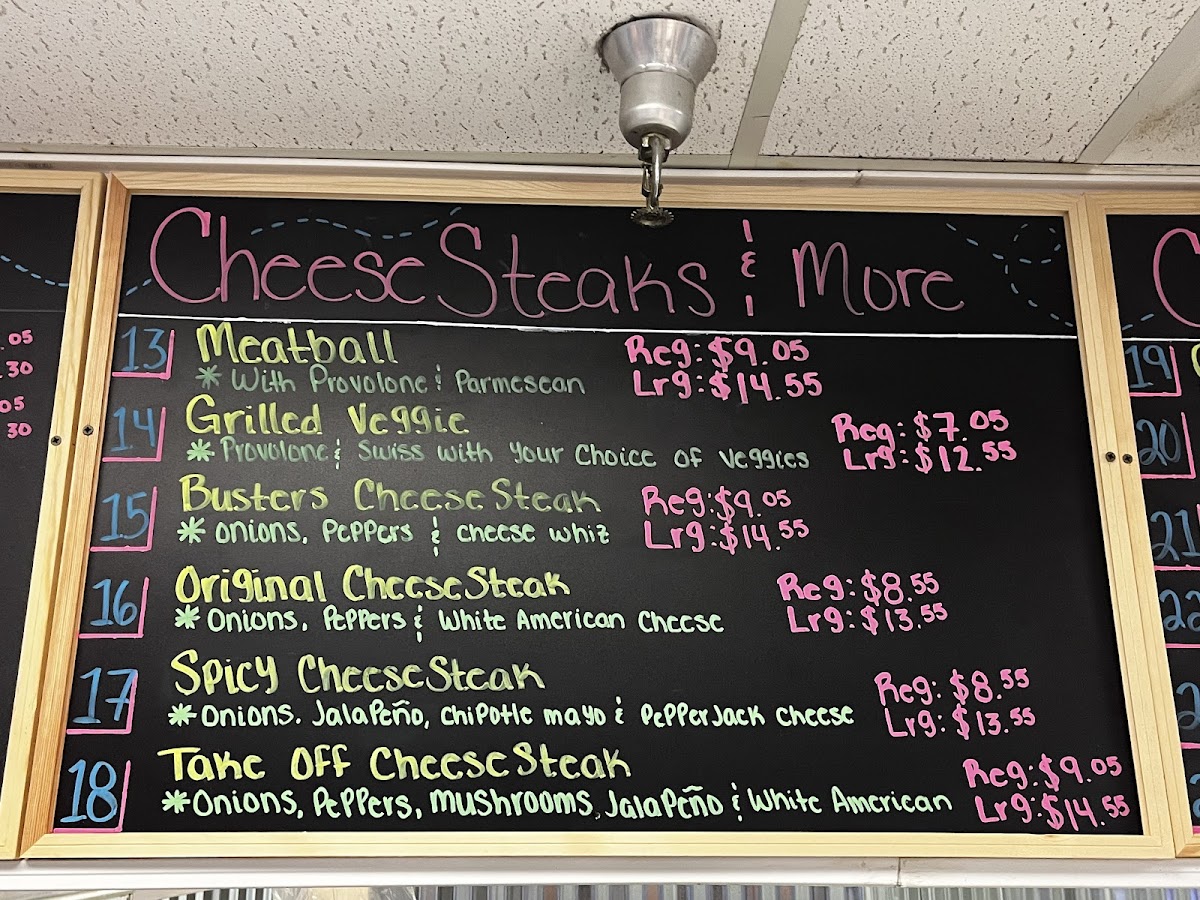 CheeseSteaks & More
13 Meatball Reg: $9.05
* With Provolone & Parmesean Lrg: $14.55
14 Grilled Veggie Reg: $7.05
* Provolone & Swiss with your choice of veggies Lrg: $12.55
15 Busters CheeseSteak Reg: $9.05
* onions, Peppers & cheese whiz Lrg: $14.55
16 Original CheeseSteak Reg: $8.55
* Onions, Peppers & White American Cheese Lrg: $13.55
17 Spicy CheeseSteak Reg: $8.55
* Onions. Jalapeño, chipotle mayo & PepperJack cheese Lrg: $13.55
18 Take Off CheeseSteak Reg: $9.05
* Onions, Peppers, mushrooms, Jalapeño & White American Lrg: $14.55
.05
.30
05
30
C
19
20
21
22